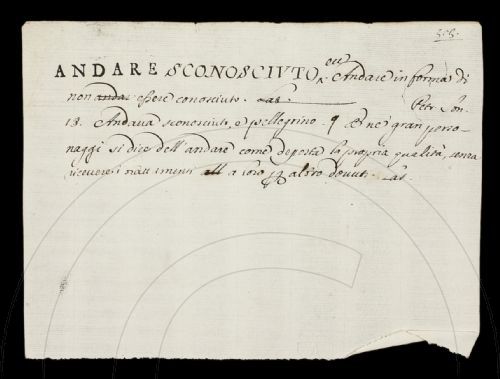 ANDARE SCONOSCIVTO. Andare in forma di
non essere conosciuto. Petr. Son.
13. Andava sconosciuto, e pellegrino. ¶ E ne' gran perso-
naggi si dice dell'andare come deposta la propria qualità, senza
ricevere i trattamenti a loro altro dovuti.